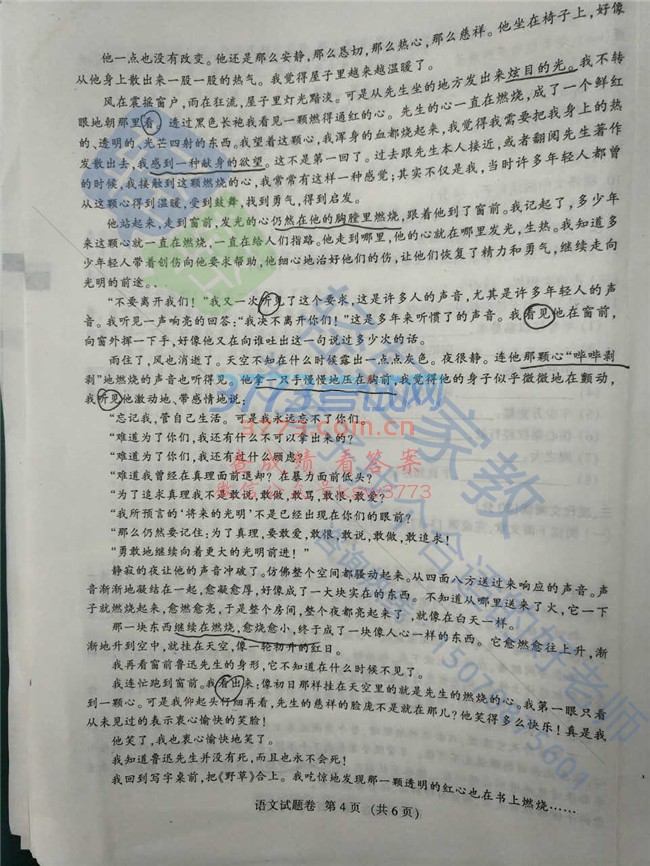 他一点也没有改变。他还是那么安静，那么恳切，那么热心，那么慈祥。他坐在椅子上，好像
从他身上散出来一股一股的热气。我觉得屋子里越来越温暖了。
风在震摇窗户，雨在狂流，屋子里灯光黯淡。可是从先生坐的地方发出来炫目的光。我不转
眼地朝那里看。透过黑色长袍我看见一颗燃得通红的心。先生的心一直在燃烧，成了一个鲜红
的、透明的、光芒四射的东西。我望着这颗心，我浑身的血都烧起来，我觉得我需要把我身上的热
发散出去，我感到一种献身的欲望。这不是第一回了。过去跟先生本人接近，或者翻阅先生著作
的时候，我接触到这颗燃烧的心，我常常有这样一种感觉；其实不仅是我，当时许多年轻人都曾
从这颗心得到温暖，受到鼓舞，找到勇气，得到启发。
他站起来，走到窗前，发光的心仍然在他的胸膛里燃烧，跟着他到了窗前。我记起了，多少年
来这颗心就一直在燃烧，一直在给人们指路。他走到哪里，他的心就在哪里发光，生热。我知道多
少年轻人带着创伤向他要求帮助，他细心地治好他们的伤，让他们恢复了精力和勇气，继续走向
光明的前途。
“不要离开我们！”我又一次听见了这个要求，这是许多人的声音，尤其是许多年轻人的声
音。我听见一声响亮的回答：“我决不离开你们！”这是多年来听惯了的声音。我看见他在窗前，
向窗外挥一下手，好像他又在向谁吐出这一句说过多少次的话。
雨住了，风也消逝了。天空不知在什么时候露出一点点灰色。夜很静。连他那颗心“哔哔剥
剥”地燃烧的声音也听得见。他拿一只手慢慢地压在胸前，我觉得他的身子似乎微微地在颤动，
我听见他激动地、带感情地说：
“忘记我，管自己生活。可是我永远忘不了你们。
“难道为了你们，我还有什么不可以拿出来的？
“难道为了你们，我还有过什么顾虑？
“难道我曾经在真理面前退却？在暴力面前低头？
“为了追求真理我不是敢说，敢做，敢骂，敢恨，敢爱？
“我所预言的‘将来的光明’不是已经出现在你们的眼前？
“那么仍然要记住：为了真理，要敢爱，敢恨，敢说，敢做，敢追求！
“勇敢地继续向着更大的光明前进！”
静寂的夜让他的声音冲破了。仿佛整个空间都骚动起来。从四面八方送过来响应的声音。声
音渐渐地凝结在一起，愈凝愈厚，好像成了一大块实在的东西。不知道从哪里送来了火，它一下
子就燃烧起来，愈燃愈亮，于是整个房间，整个夜都亮起来了，就像在白天一样。
那一块东西继续在燃烧，愈烧愈小，终于成了一块像人心一样的东西。它愈燃愈往上升，渐
渐地升到空中，就挂在天空，像一轮初升的红日。
我再看窗前鲁迅先生的身形，它不知道在什么时候不见了。
我连忙跑到窗前。我看出来：像初日那样挂在天空里的就是先生的燃烧的心。我第一眼只看
到一颗心。可是我仰起头仔细再看，先生的慈祥的脸庞不是就在那儿？他笑得多么快乐！真是我
从未见过的表示衷心愉快的笑脸！
他笑了，我也衷心愉快地笑了。
我知道鲁迅先生并没有死，而且也永不会死！
我回到写字桌前，把《野草》合上。我吃惊地发现那一颗透明的红心也在书上燃烧……
语文试题卷 第4页 （共6页）
3773考试网
3773.com.cn
查成绩 看答案